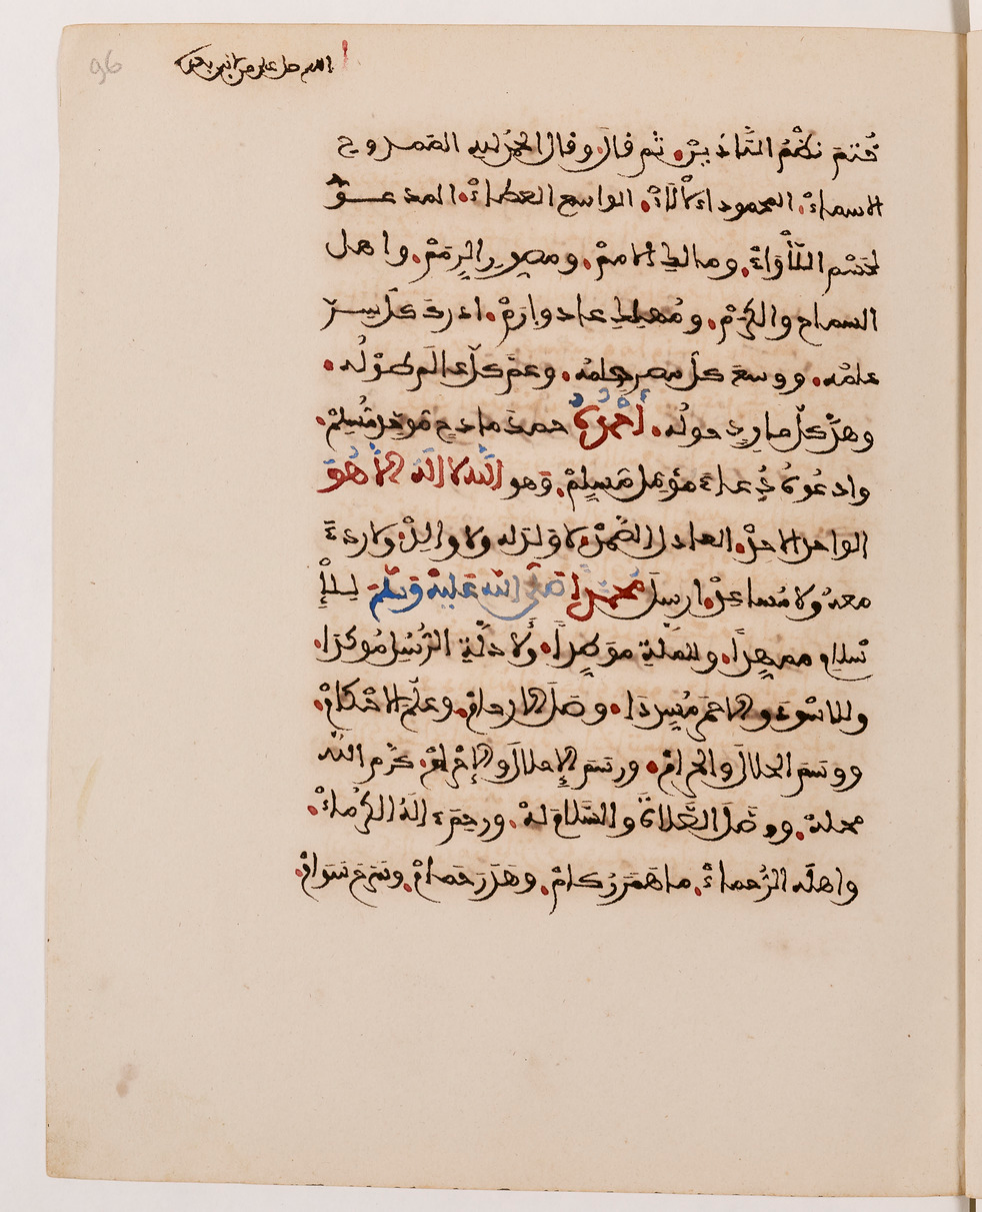 96
اللهم صل على من لا نبي بعده
تختم نظم التأذين. ثم قال وقال الحمد لله الممدوح
الاسماء. المحمود الآلاء. الواسع العطاء. المدعو
لحسم اللأواء. ومالك الامم. ومصور الرمم. واهل
السماح والكرم. ومهلك عاد وارم. ادرك كل سر
علمه. ووسع كل مصر حلمه. وعم كل عالم طوله.
وهد كل مارد حوله. أحمده حمد مادح موحد مسلم.
وادعوه دعاء مؤمل مسلم. وهو الله لا اله الا هو
الواحد الاحد. العادل الصمد. لا ولد له ولا والد. ولا ردء
معه ولا مساعد. ارسل محمدا صلى الله عليه وسلم للإ
سلام ممهدا. وللملة موطدا. ولادلة الرسل موكدا.
وللاسود والاحمر مسددا. وصل الارحام. وعلم الاحكام.
ووسم الحلال والحرام. ورسم الإحلال والإحرام. كرم الله
محله. وو صل الصلاة والسلام له. ورحم ءاله الكرماء.
واهله الرحماء. ما همر ركام. وهدر حمام. وسرح سوام.